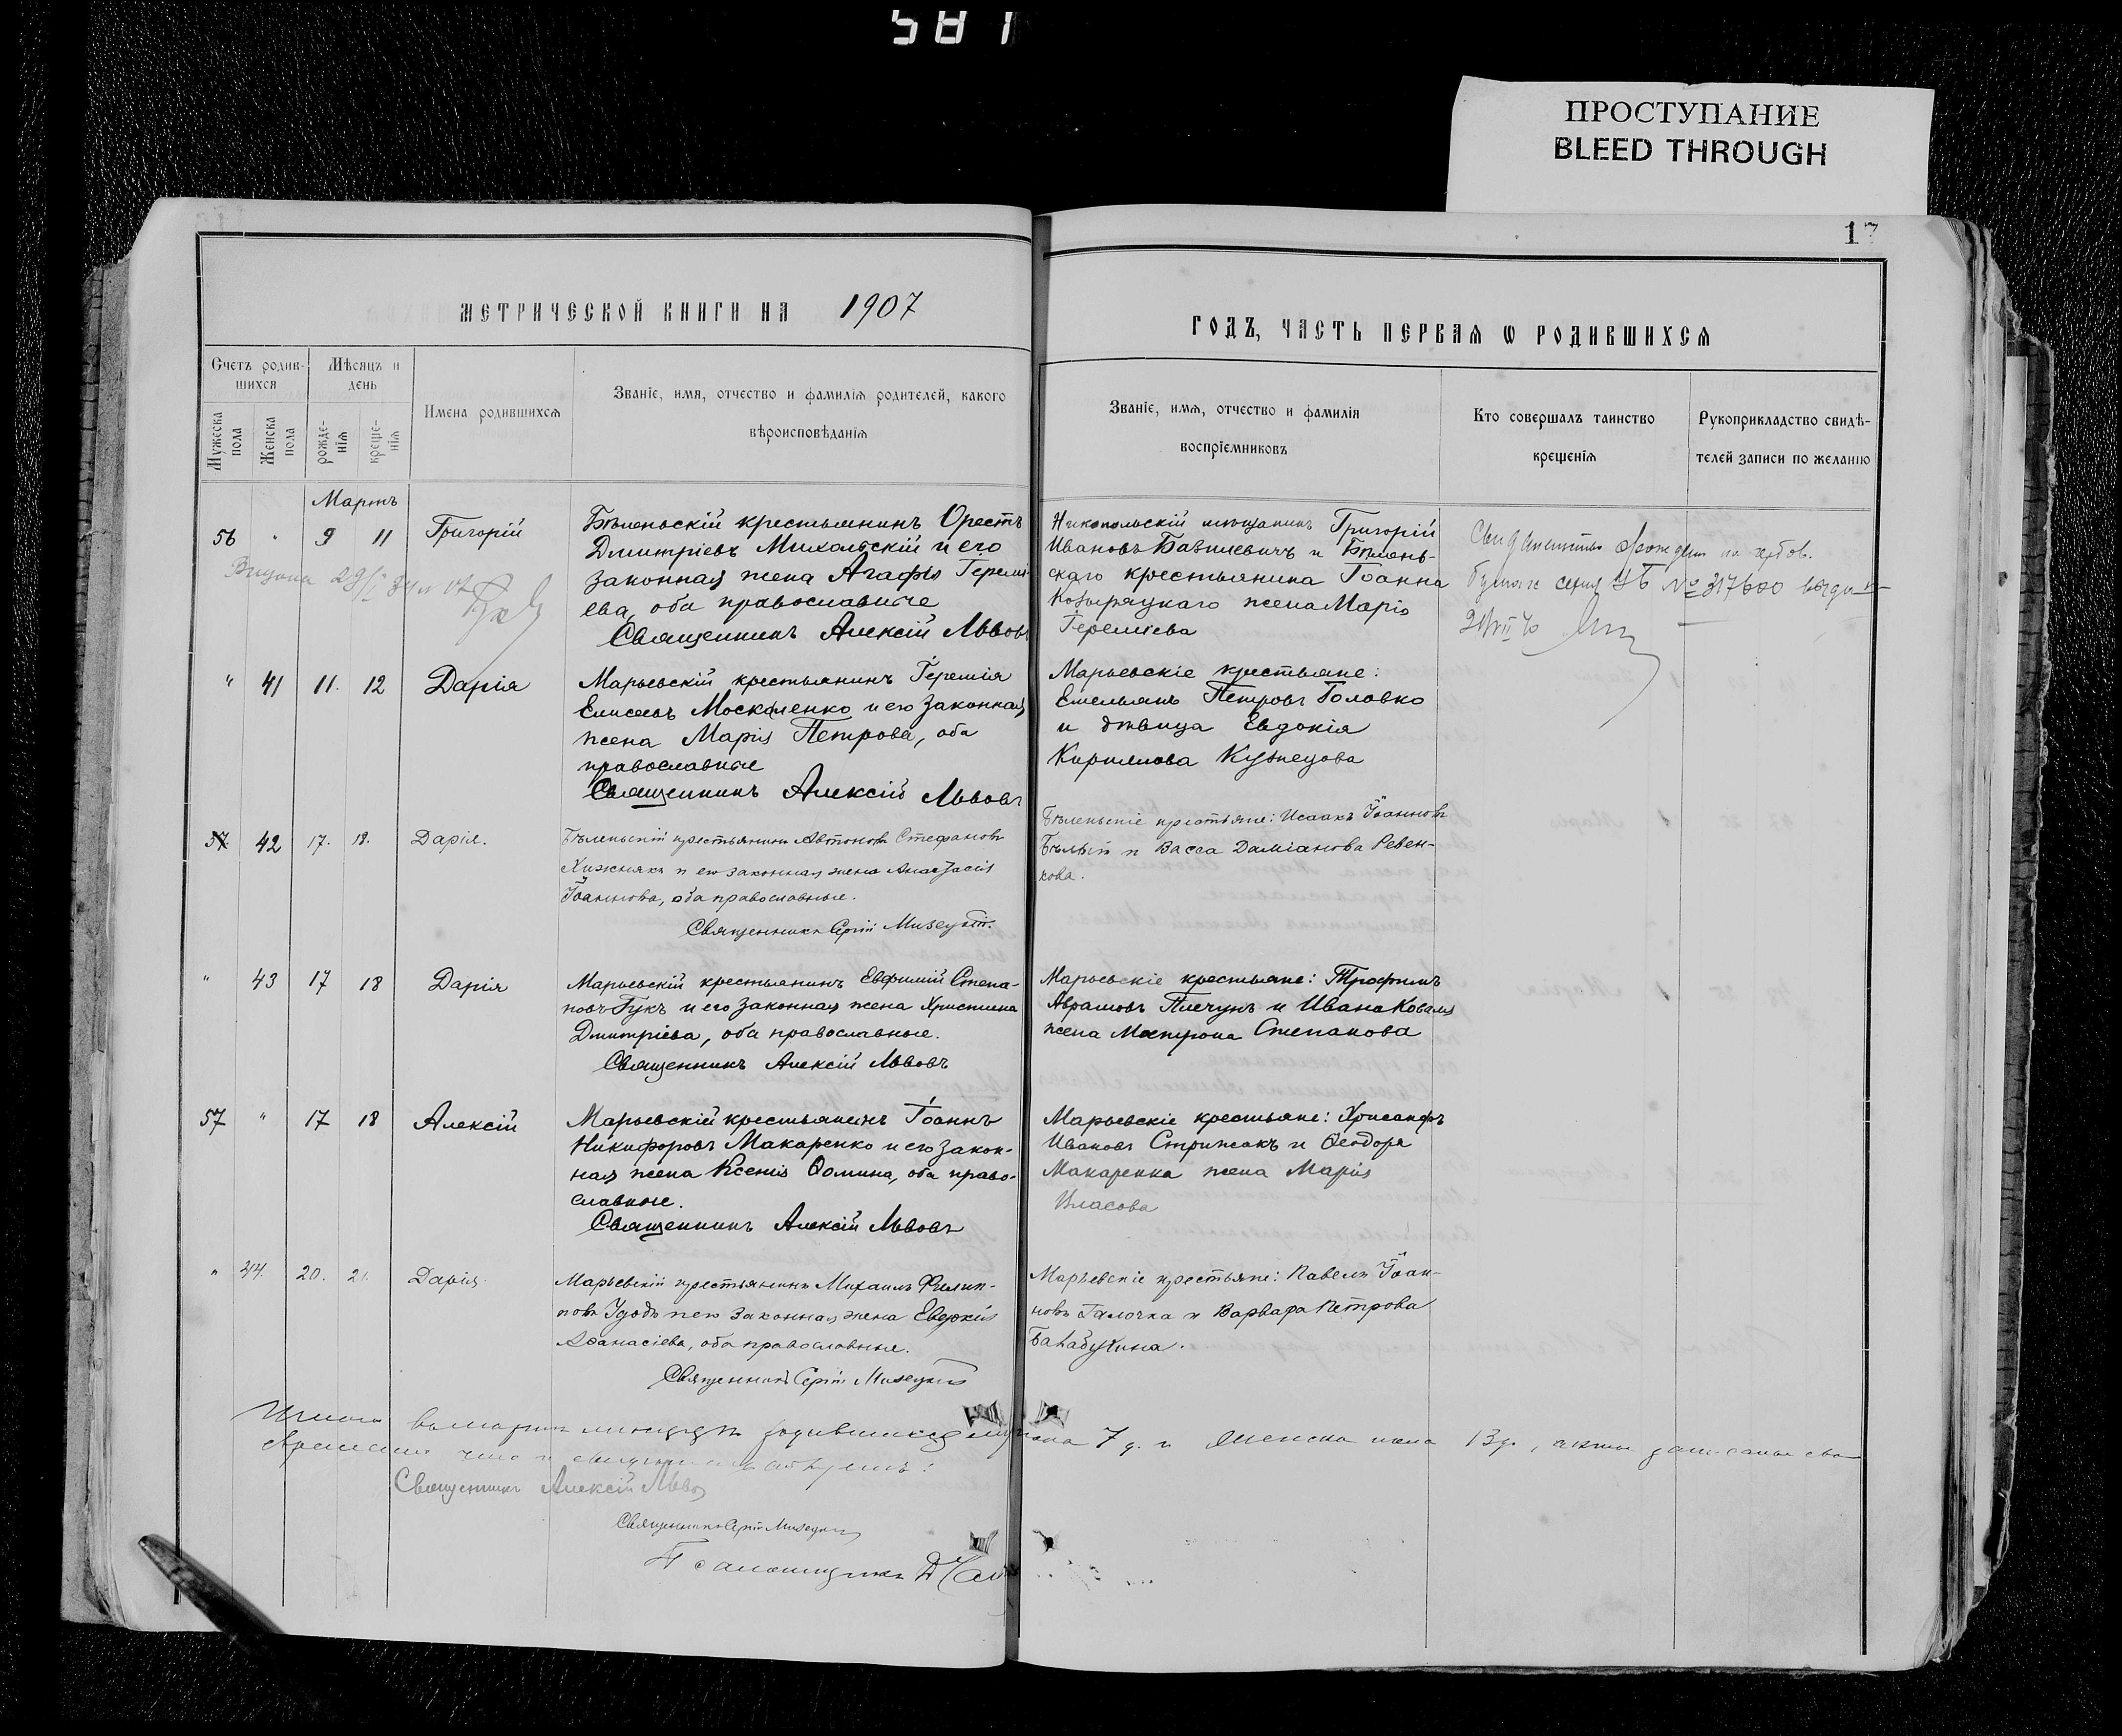 581
ПРОСТУПАНИЕ
BLEED THROUGH
17
МЕТРИЧЕСКОЙ КНИГИ НА 1907
ГОДЪ, ЧАСТЬ ПЕРВАЯ Ѡ РОДИВШИХСЯ
Счетъ родив-
шихся
Мужеска
пола
Женска
пола
Мѣсяцъ и
день
рожде-
нія
креще-
нія
Имена родившихся
Званіе, имя, отчество и фамилія родителей, какого
вѣроисповѣданія
Званіе, имя, отчество и фамилія
воспріемниковъ
Кто совершалъ таинство
крещенія
Рукоприкладство свидѣ-
телей записи по желанію
Мартъ
56 " 9 11 Григорій
Бѣленьскій крестьянинъ Орестъ
Дмитріевъ Михальскій и его
законная жена Агафія Геремі-
ева, оба православные
Священникъ Алексій Львовъ
Никопольскій мѣщанинъ Григорій
Ивановъ Базилевичъ и Бѣлень-
скаго крестьянина Іоанна
Козыряцкаго жена Марія
Іереміева
№ 317600
" 41 11. 12 Дарія
Марьевскій крестьянинъ Іеремія
Елисеевъ Москаленко и его законная
жена Марія Петрова, оба
православные
Священникъ Алексій Львовъ
Марьевскіе крестьяне:
Емельянъ Петровъ Головко
и дѣвица Евдокія
Кириллова Кузнецова
57. 42 17. 18. Дарія.
Бѣленьскій крестьянинъ Автономъ Стефановъ
Хижнякъ и его законная жена Анастасія
Іоаннова, оба православные.
Священникъ Сергій Мизецкій.
Бѣленьскіе крестьяне: Исаакъ Іоанновъ
Бѣлый и Васса Даміанова Ревен-
кова.
" 43 17 18 Дарія
Марьевскій крестьянинъ Евфимій Степа-
новъ Гукъ и его законная жена Христина
Дмитріева, оба православные.
Священникъ Алексій Львовъ
Марьевскіе крестьяне: Трофимъ
Аврамовъ Плечунъ и Ивана Коваля
жена Матрона Степанова
57 " 17 18 Алексій
Марьевскій крестьянинъ Іоаннъ
Никифоровъ Макаренко и его закон-
ная жена Ксенія Ѳомина, оба право-
славные.
Священникъ Алексій Львовъ
Марьевскіе крестьяне: Хрисанфъ
Ивановъ Стрижакъ и Ѳеодора
Макаренка жена Марія
Власова
" 44. 20. 21. Дарія.
Марьевскій крестьянинъ Михаилъ Филип-
повъ Удодъ и его законная жена Евдокія
Аѳанасіева, оба православные.
Священникъ Сергій Мизецкій
Марьевскіе крестьяне: Павелъ Іоан-
новъ Галочка и Варвара Петрова
Итого въ мартѣ мѣсяцѣ родившихся муж. пола 7 д. и женска пола 13 д., акты
Священникъ Алексій Львовъ
Священникъ Сергій Мизецкій
Псаломщикъ